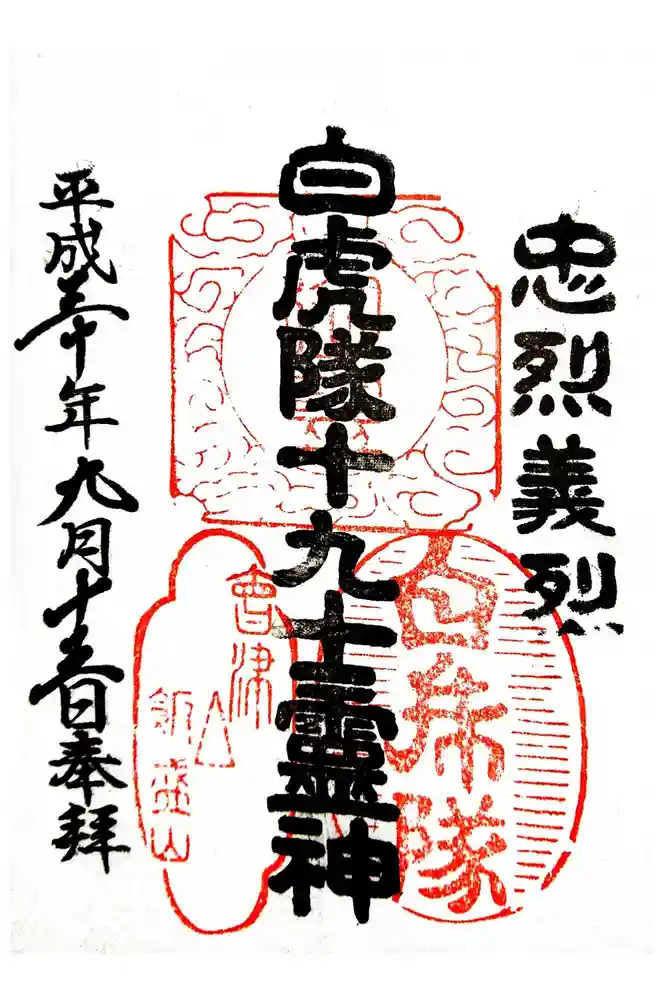 忠烈義烈
白虎隊十九士靈神
白虎隊
會津
飯盛山
平成三十年九月十五日奉拝